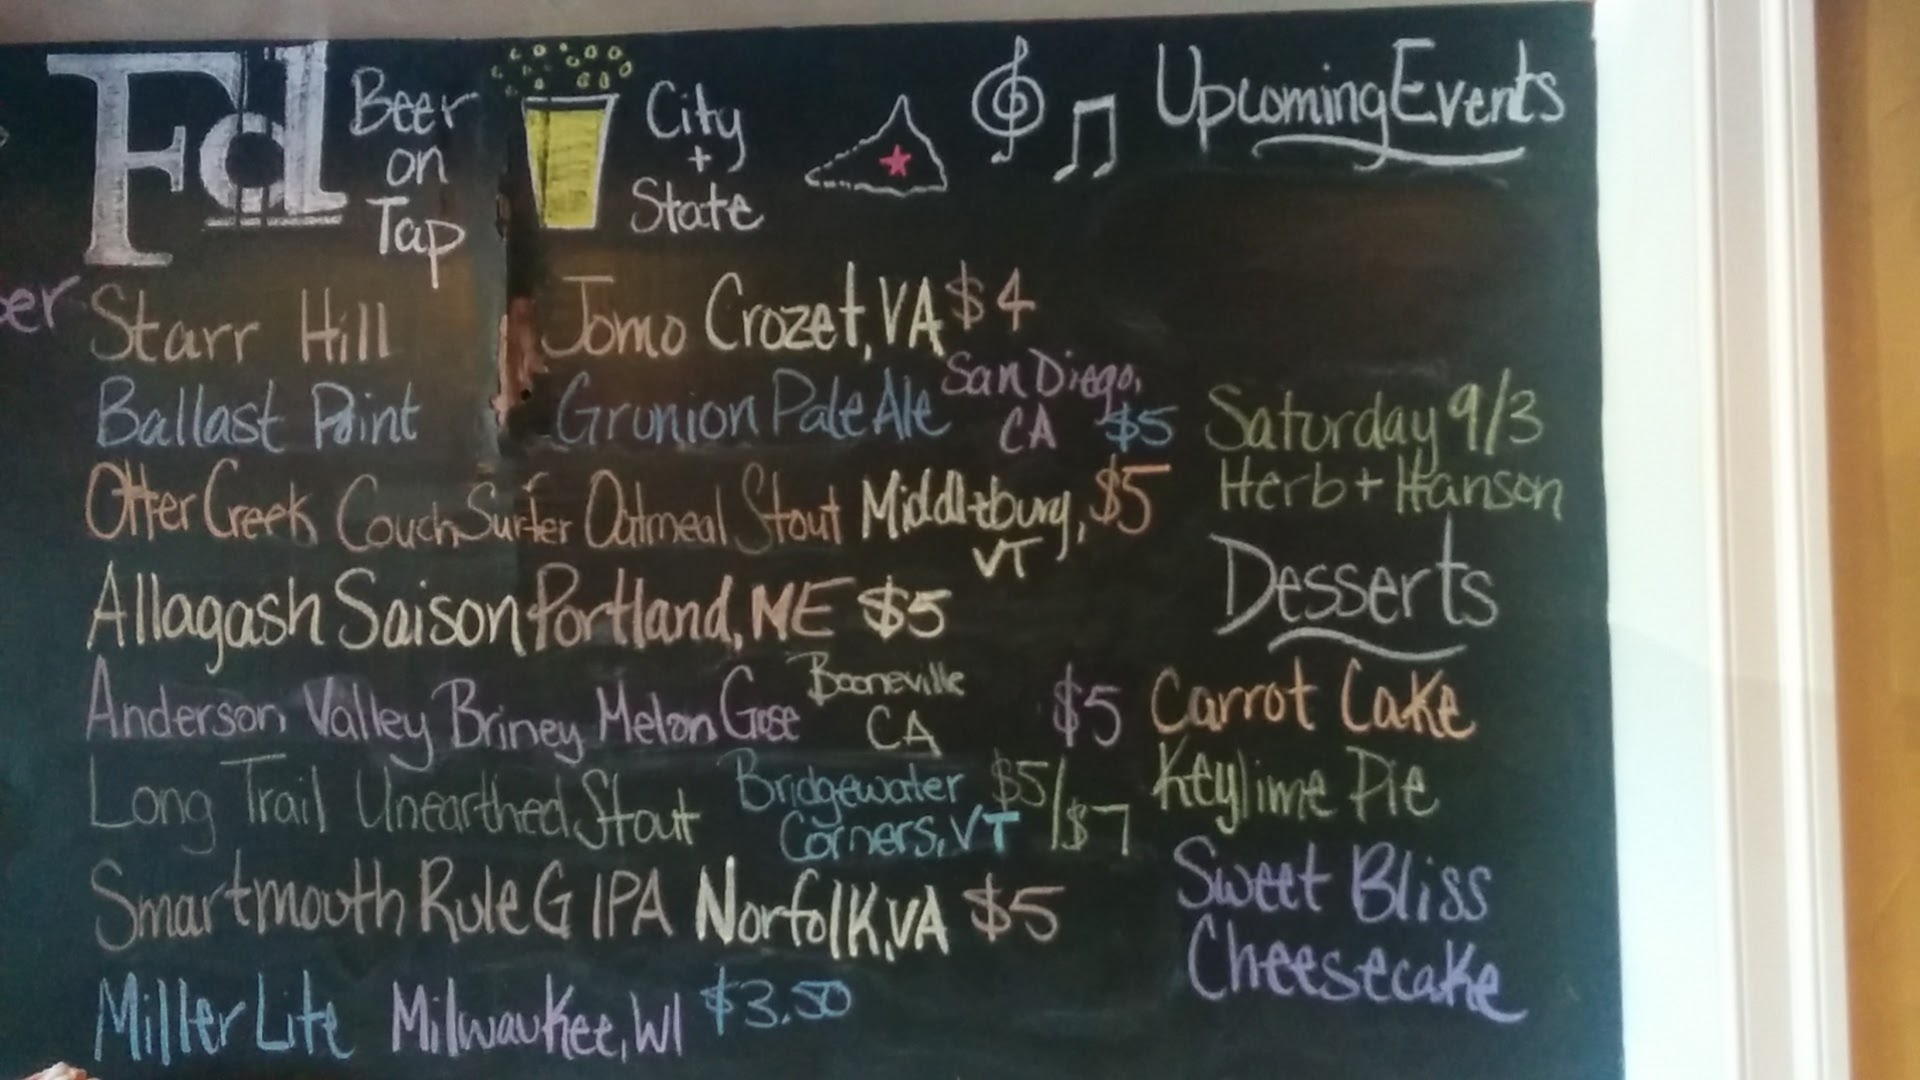 Fd
Beer
on
Tap
City
+
State
Upcoming Events
Starr Hill Jomo Crozet, VA $4
Ballast Point Grunion Pale Ale San Diego,
CA $5
Otter Creek Couch Surfer Oatmeal Stout Middlebury, $5
VT
Allagash Saison Portland, ME $5
Anderson Valley Briney Melon Gose Booneville
CA $5
Long Trail Unearthed Stout Bridgewater $5/$7
Corners, VT
Smartmouth Rule G IPA Norfolk, VA $5
Miller Lite Milwaukee, WI $3.50
Saturday 9/3
Herb + Hanson
Desserts
Carrot Cake
Keylime Pie
Sweet Bliss
Cheesecake